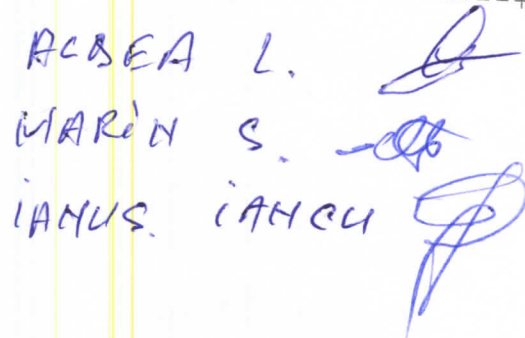 ALBEA L.
MARIN S.
IANUS IANCU